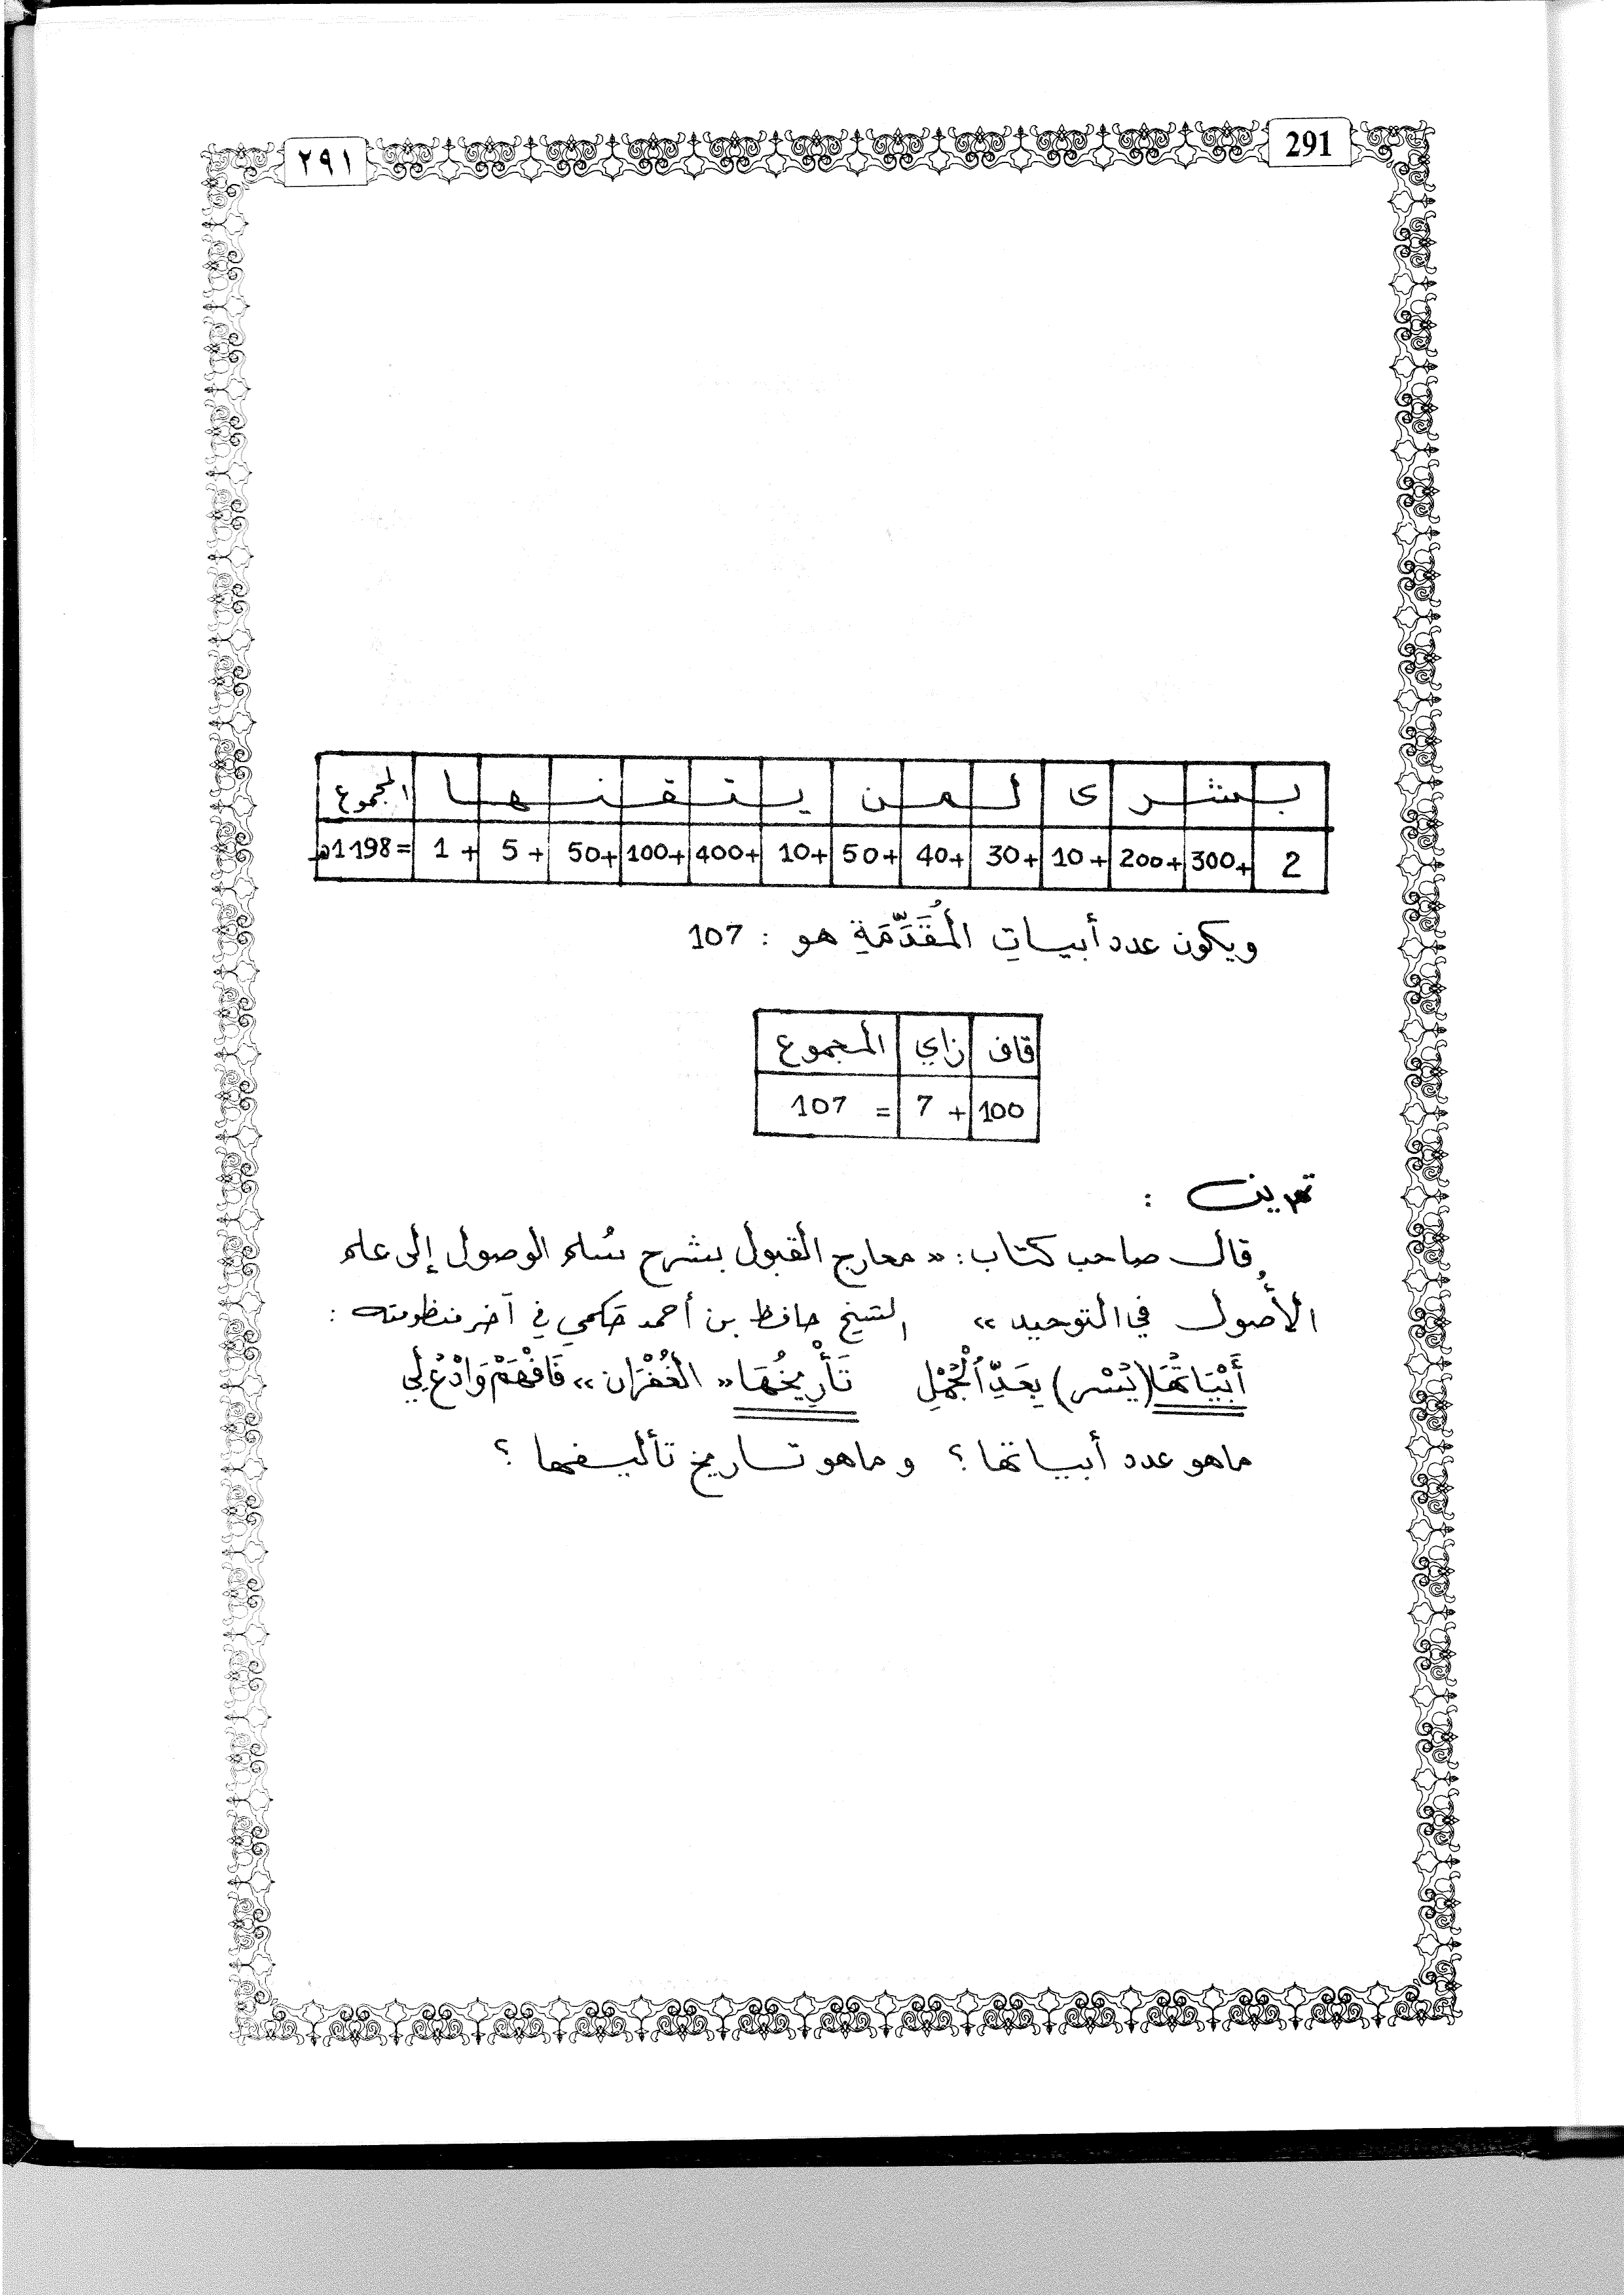 291 ٢٩١
ب شـ ر ى لـ مـ ن يـ تـ قـ نـ هـ ا المجموع
2 +300 +200 +10 +30 +40 +50 +10 +400 +100 +50 +5 +1 =1198هـ
ويكون عدد أبيات المُقَدِّمَةِ هو : 107
قاف زاي المجموع
100 +7 = 107
تمرين :
قال صاحب كتاب : « معارج القبول بشرح سُلم الوصول إلى علم
الأُصول في التوحيد » الشيخ حافظ بن أحمد حكمي في آخر منظومته :
أَبْيَاتُهَا (يُسْر) بِعَدِّ الْجُمَّلِ تَأْرِيخُهَا « الغُفْرَان » فَافْهَمْ وَادْعُ لِي
ما هو عدد أبياتها ؟ و ما هو تاريخ تأليفها ؟